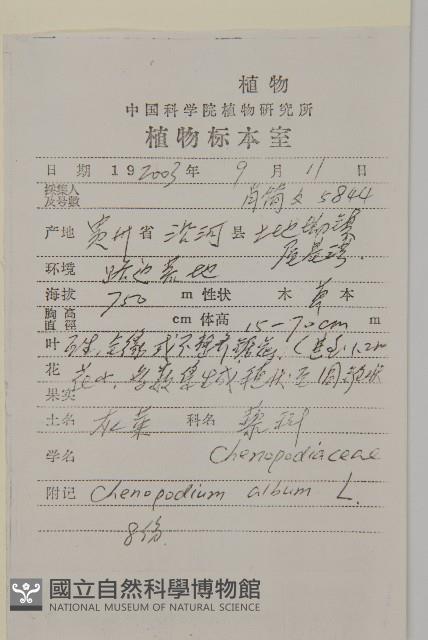 植物
中国科学院植物研究所
植物标本室
日期 19 2003 年 9 月 11 日
採集人
及号数 肖简文 5844
产地 贵州 省 沿河 县 土地坳镇
环境 路边荒地
海拔 750 m 性状 木 草 本
胸高
直徑 cm 体高 15-70cm m
叶 互生,全缘或不整齐锯齿,
花 花小,
果实
土名 灰菜 科名 藜科
学名 Chenopodiaceae
附记 Chenopodium album L.
8份
國立自然科學博物館
NATIONAL MUSEUM OF NATURAL SCIENCE